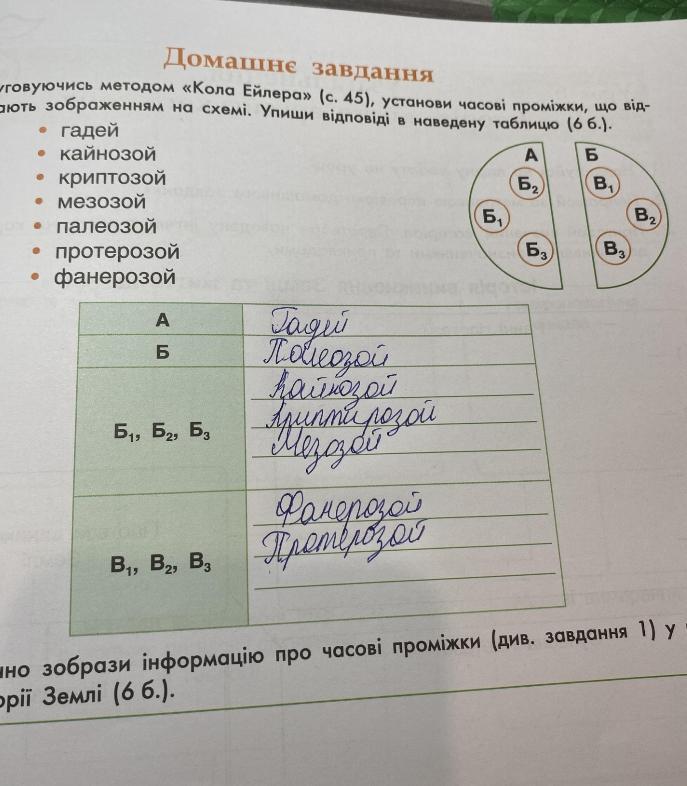 Домашнє завдання
уговуючись методом «Кола Ейлера» (с. 45), установи часові проміжки, що від-
ають зображенням на схемі. Упиши відповіді в наведену таблицю (6 б.).
• гадей
• кайнозой
• криптозой
• мезозой
• палеозой
• протерозой
• фанерозой
А Б
Б₂ В₁
Б₁ В₂
Б₃ В₃
А Гадей
Б Полеозой
Кайнозой
Б₁, Б₂, Б₃ Криптирозой
Мезозой
Фанерозой
Протерозой
В₁, В₂, В₃
чно зобрази інформацію про часові проміжки (див. завдання 1) у
орії Землі (6 б.).